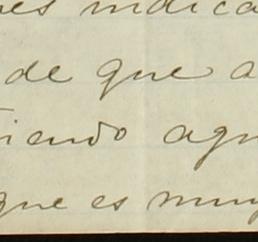 es indica
de que a
iendo agu
que es muy